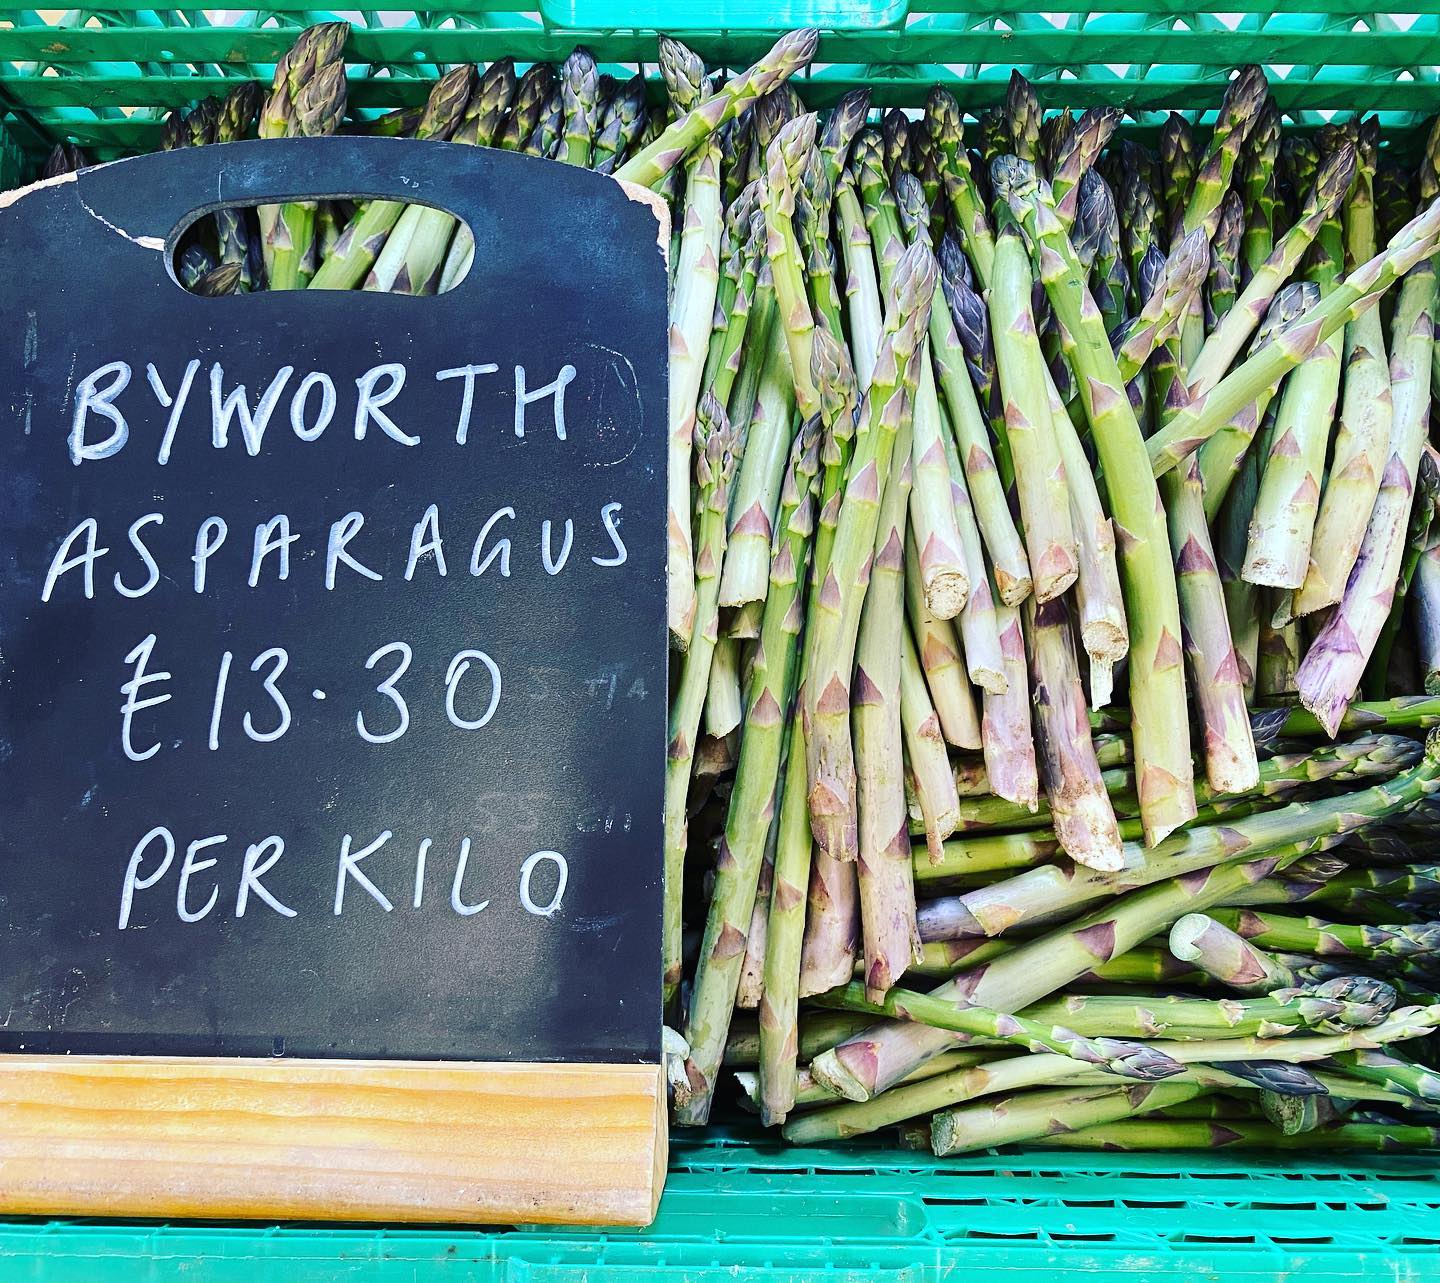 BYWORTH
ASPARAGUS
£13.30
PER KILO